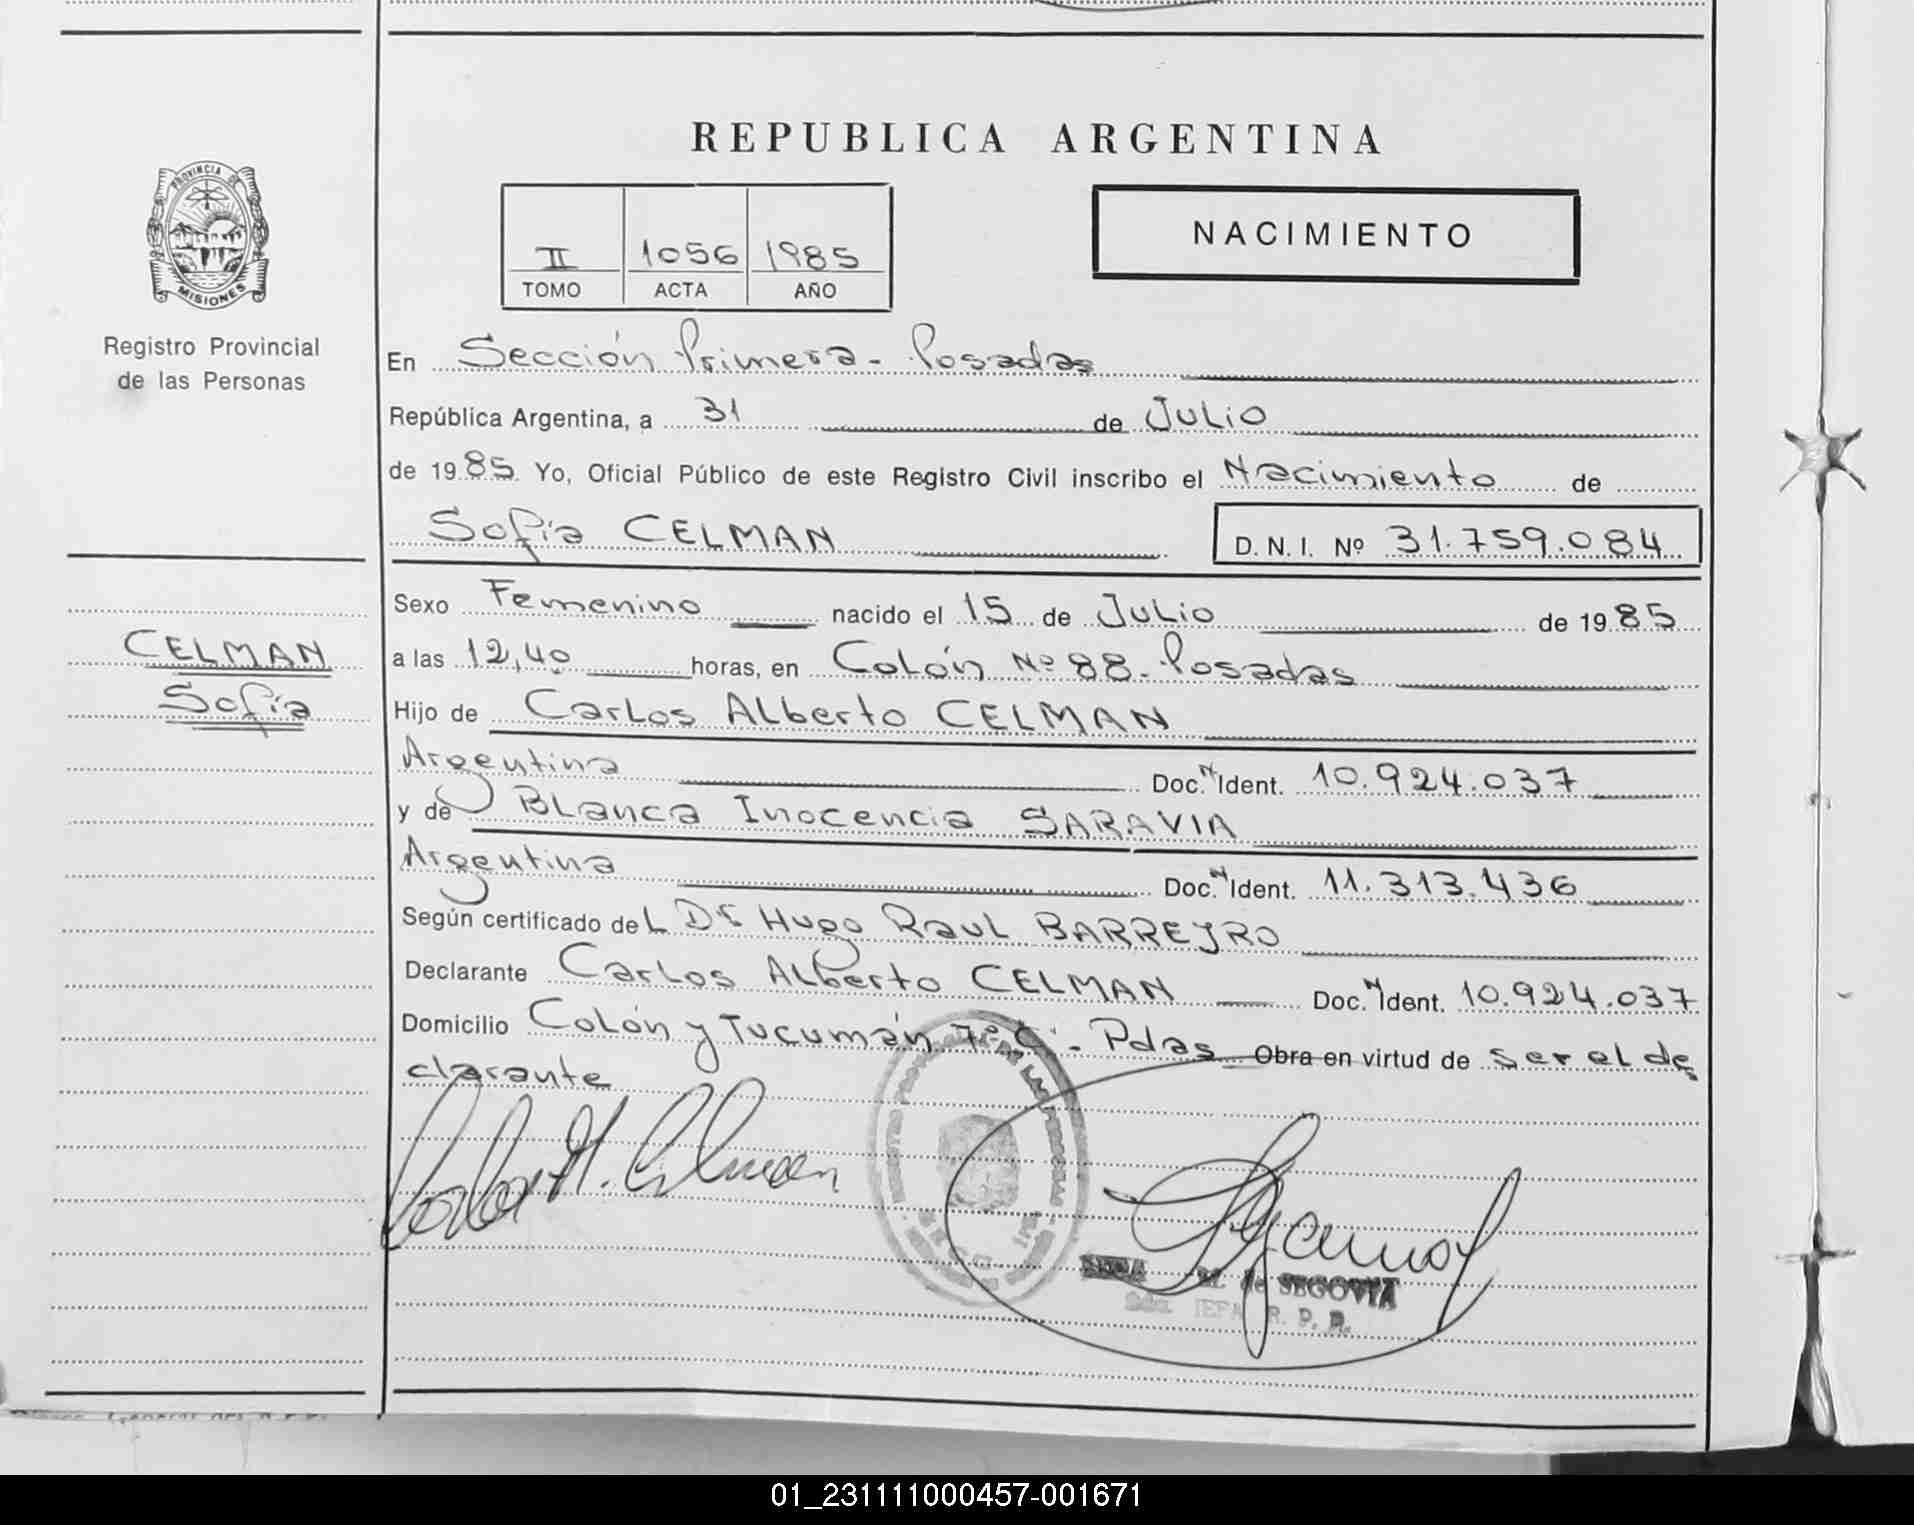 REPUBLICA ARGENTINA
PROVINCIA DE
MISIONES
Registro Provincial
de las Personas
II 1056 1985
TOMO ACTA AÑO
NACIMIENTO
En Sección Primera - Posadas
República Argentina, a 31 de Julio
de 1985 Yo, Oficial Público de este Registro Civil inscribo el Nacimiento de
Sofía CELMAN D. N. I. Nº 31.759.084
CELMAN
Sofía
Sexo Femenino nacido el 15 de Julio de 1985
a las 12,40 horas, en Colón Nº 88 - Posadas
Hijo de Carlos Alberto CELMAN
Argentina Doc. N Ident. 10.924.037
y de Blanca Inocencia SARAVIA
Argentina Doc. N Ident. 11.313.436
Según certificado del Dr Hugo Raul BARREYRO
Declarante Carlos Alberto CELMAN Doc. N Ident. 10.924.037
Domicilio Colón y Tucumán 7º C - Pdas Obra en virtud de ser el de
clarante
de SEGOVIA
R. P. P.
01_231111000457-001671